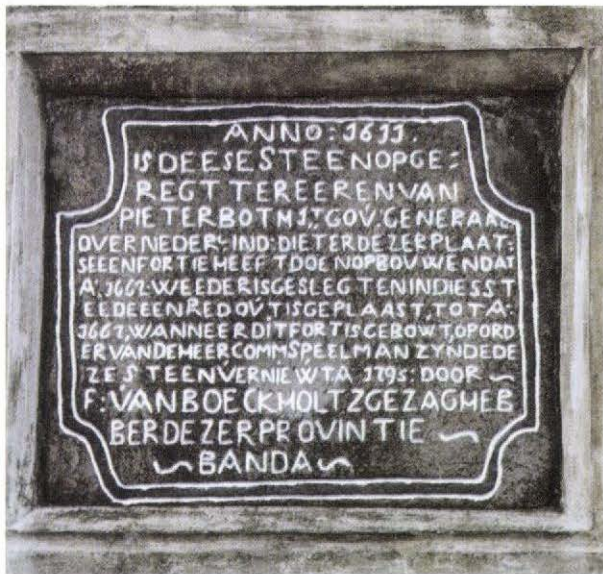 ANNO: 1611.
IS DEESE STEEN OPGE:
REGT TER EEREN VAN
PIETER BOT M 1.T GOŬ GENERAAL
OVER NEDERL IND: DIE TER DEZER PLAAT:
SE EEN FORTIE HEEFT DOEN OPBOUWEN DAT
A.º 1662 WEEDER IS GESLEGTEN IN DIES ST
EEDE EEN REDOŬT IS GEPLAAST, TOT A:
1667, WANNEER DIT FORT IS GEBOWT, OP ORD
ER VAN DE HEER COMM SPEELMAN ZYNDE DE
ZE STEEN VERNIEWT A 1795: DOOR ~
F: VAN BOECKHOLTZ GEZAGHEB
BER DEZER PROVINTIE ~
~ BANDA ~